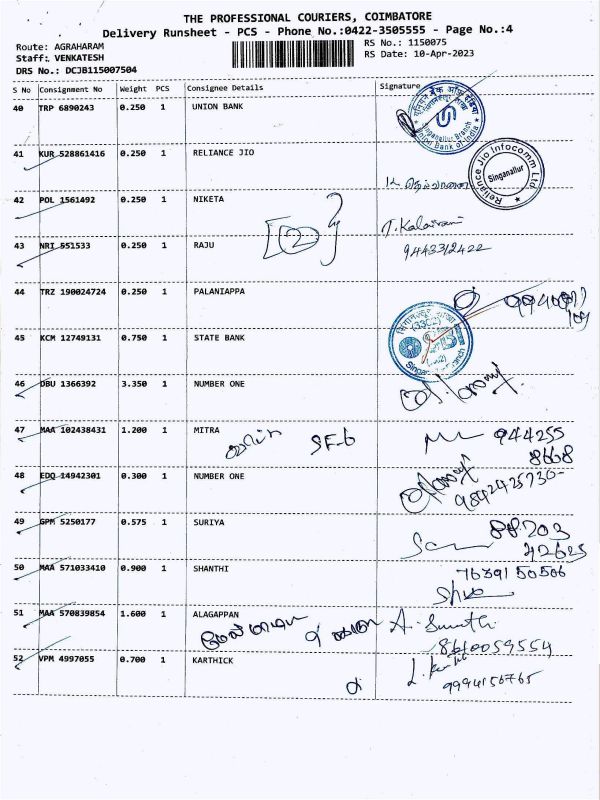 THE PROFESSIONAL COURIERS, COIMBATORE
Delivery Runsheet - PCS - Phone No.:0422-3505555 - Page No.:4
Route: AGRAHARAM
RS No.: 1150075
Staff: VENKATESH
RS Date: 10-Apr-2023
DRS No.: DCJB115007504
S No Consignment No Weight PCS Consignee Details Signature
40 TRP 6890243 0.250 1 UNION BANK
Singanallur Branch
41 KUR 528861416 0.250 1 RELIANCE JIO
Reliance Jio Infocomm Ltd
Singanallur
42 POL 1561492 0.250 1 NIKETA
T. Kalairani
43 NRI 551533 0.250 1 RAJU
2
9443312422
44 TRZ 190024724 0.250 1 PALANIAPPA
45 KCM 12749131 0.750 1 STATE BANK
46 DBU 1366392 3.350 1 NUMBER ONE
47 MAA 102438431 1.200 1 MITRA
SF-6
944255
8668
48 EDQ 14942301 0.300 1 NUMBER ONE
9842425730-
49 GPM 5250177 0.575 1 SURIYA
88703
42625
50 MAA 571033410 0.900 1 SHANTHI
7639150506
51 MAA 570839854 1.600 1 ALAGAPPAN
A. Sumathi
8610059554
52 VPM 4997055 0.700 1 KARTHICK
9994156765